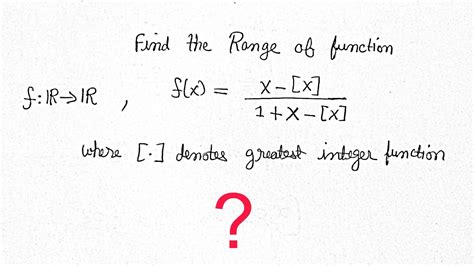 Find the Range of function
f:ℝ→ℝ , f(x) = x-[x] / 1+x-[x]
where [·] denotes greatest integer function
?